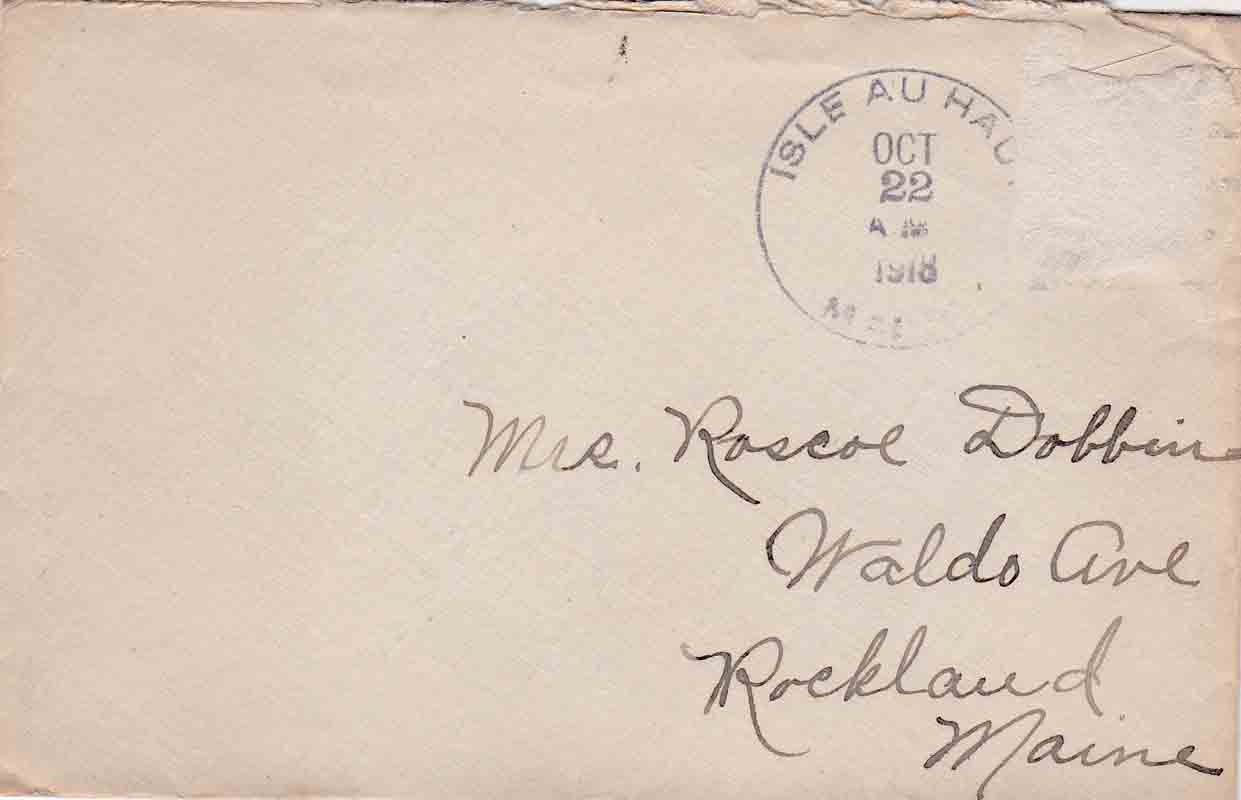 ISLE AU HAU
OCT
22
A M
1918
Mrs. Roscoe Dobbins
Waldo Ave
Rockland
Maine